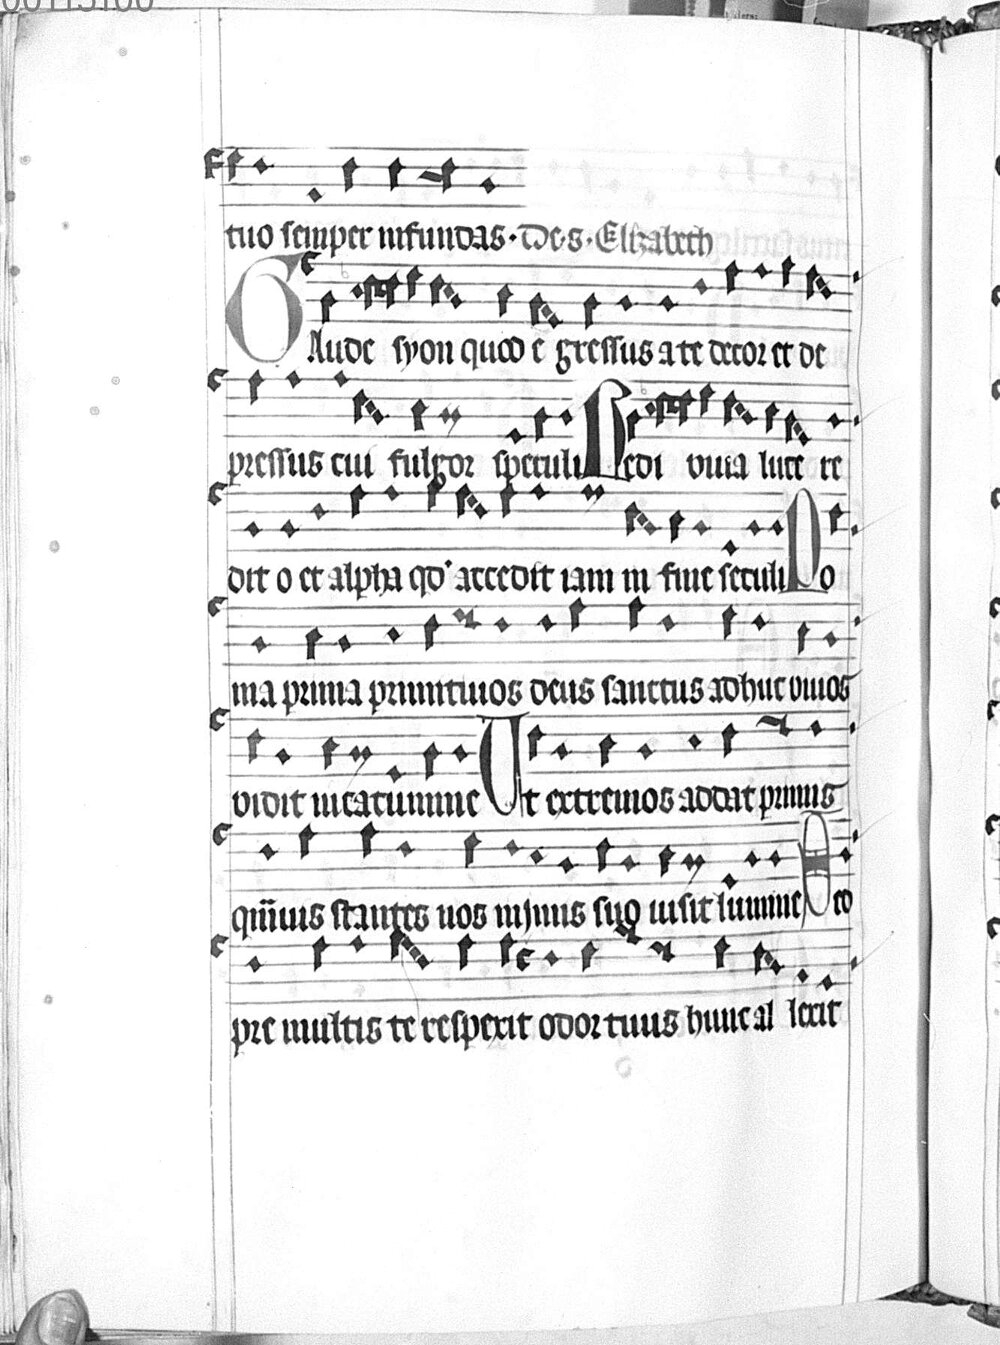 tuo semper infundas · De · s · Elizabeth
GAude syon quod e gressus a te decor et de
pressus cui fulgor speculi Redi viuia luce re
dit o et alpha qd' accedit iam in fine seculi Po
ma prima primitiuos deus sanctus adhuc viuos
vidit in cacumine Vt extremos addat primis
stantes uos in suo uisit lumine Ceo
pre multis te respexit odor tuus hunc al lexit